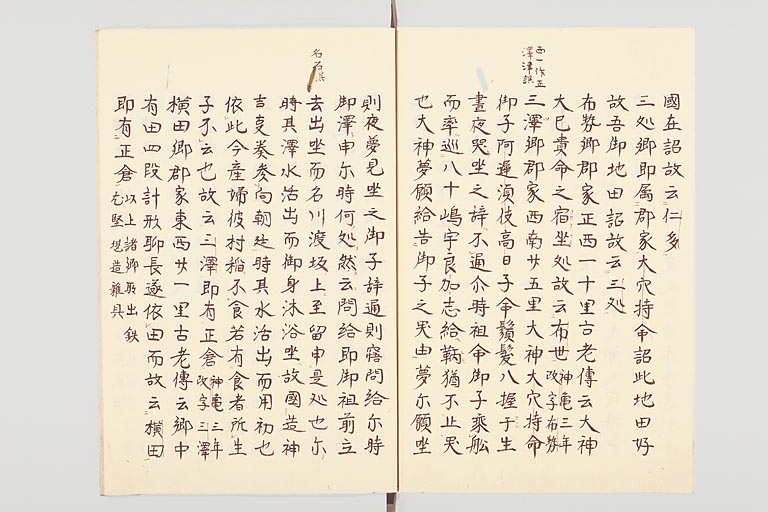 國在詔故云仁多
三処郷即属郡家大穴持命詔此地田好
故吾御地田詔故云三処
布勢郷郡家正西一十里古老傳云大神
大巳貴命之宿坐処故云布世神亀三年改字布勢
三澤郷郡家西南廿五里大神大穴持命
御子阿遲湏伎高日子命鬚髮八握于生
晝夜哭坐之辞不通尒時祖命御子乘舩
而率巡八十嶋宇良加志給鞆猶不止哭
也大神夢願給告御子之哭由夢尓願坐
西一作正
澤津誤
則夜夢見坐之御子辞通則寤問給尓時
御澤申尓時何処然云問給即御祖前立
去出坐而石川渡坂上至留申是処也尓
時其澤水治出而御身沐浴坐故國造神
吉事奏参向朝廷時其水治出而用初也
依此今産婦彼村稲不食若有食者所生
子不云也故云三澤即有正倉神亀三年改字三澤
横田郷郡家東西廿一里古老傳云郷中
有田四段計形聊長遂依田而故云横田
即有正倉以上諸郷所出鉄尤堅堪造雜具